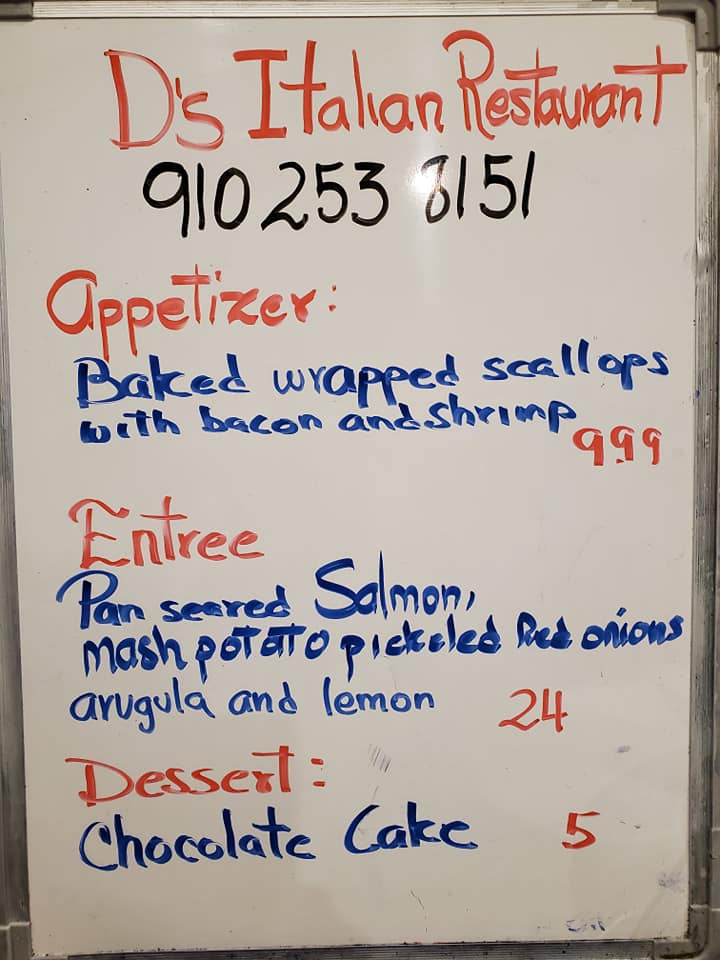 D's Italian Restaurant
910 253 8151
Appetizer:
Baked wrapped scallops
with bacon and shrimp 9.99
Entree
Pan seared Salmon,
mash potato pickeled Red onions
arugula and lemon 24
Dessert:
Chocolate Cake 5